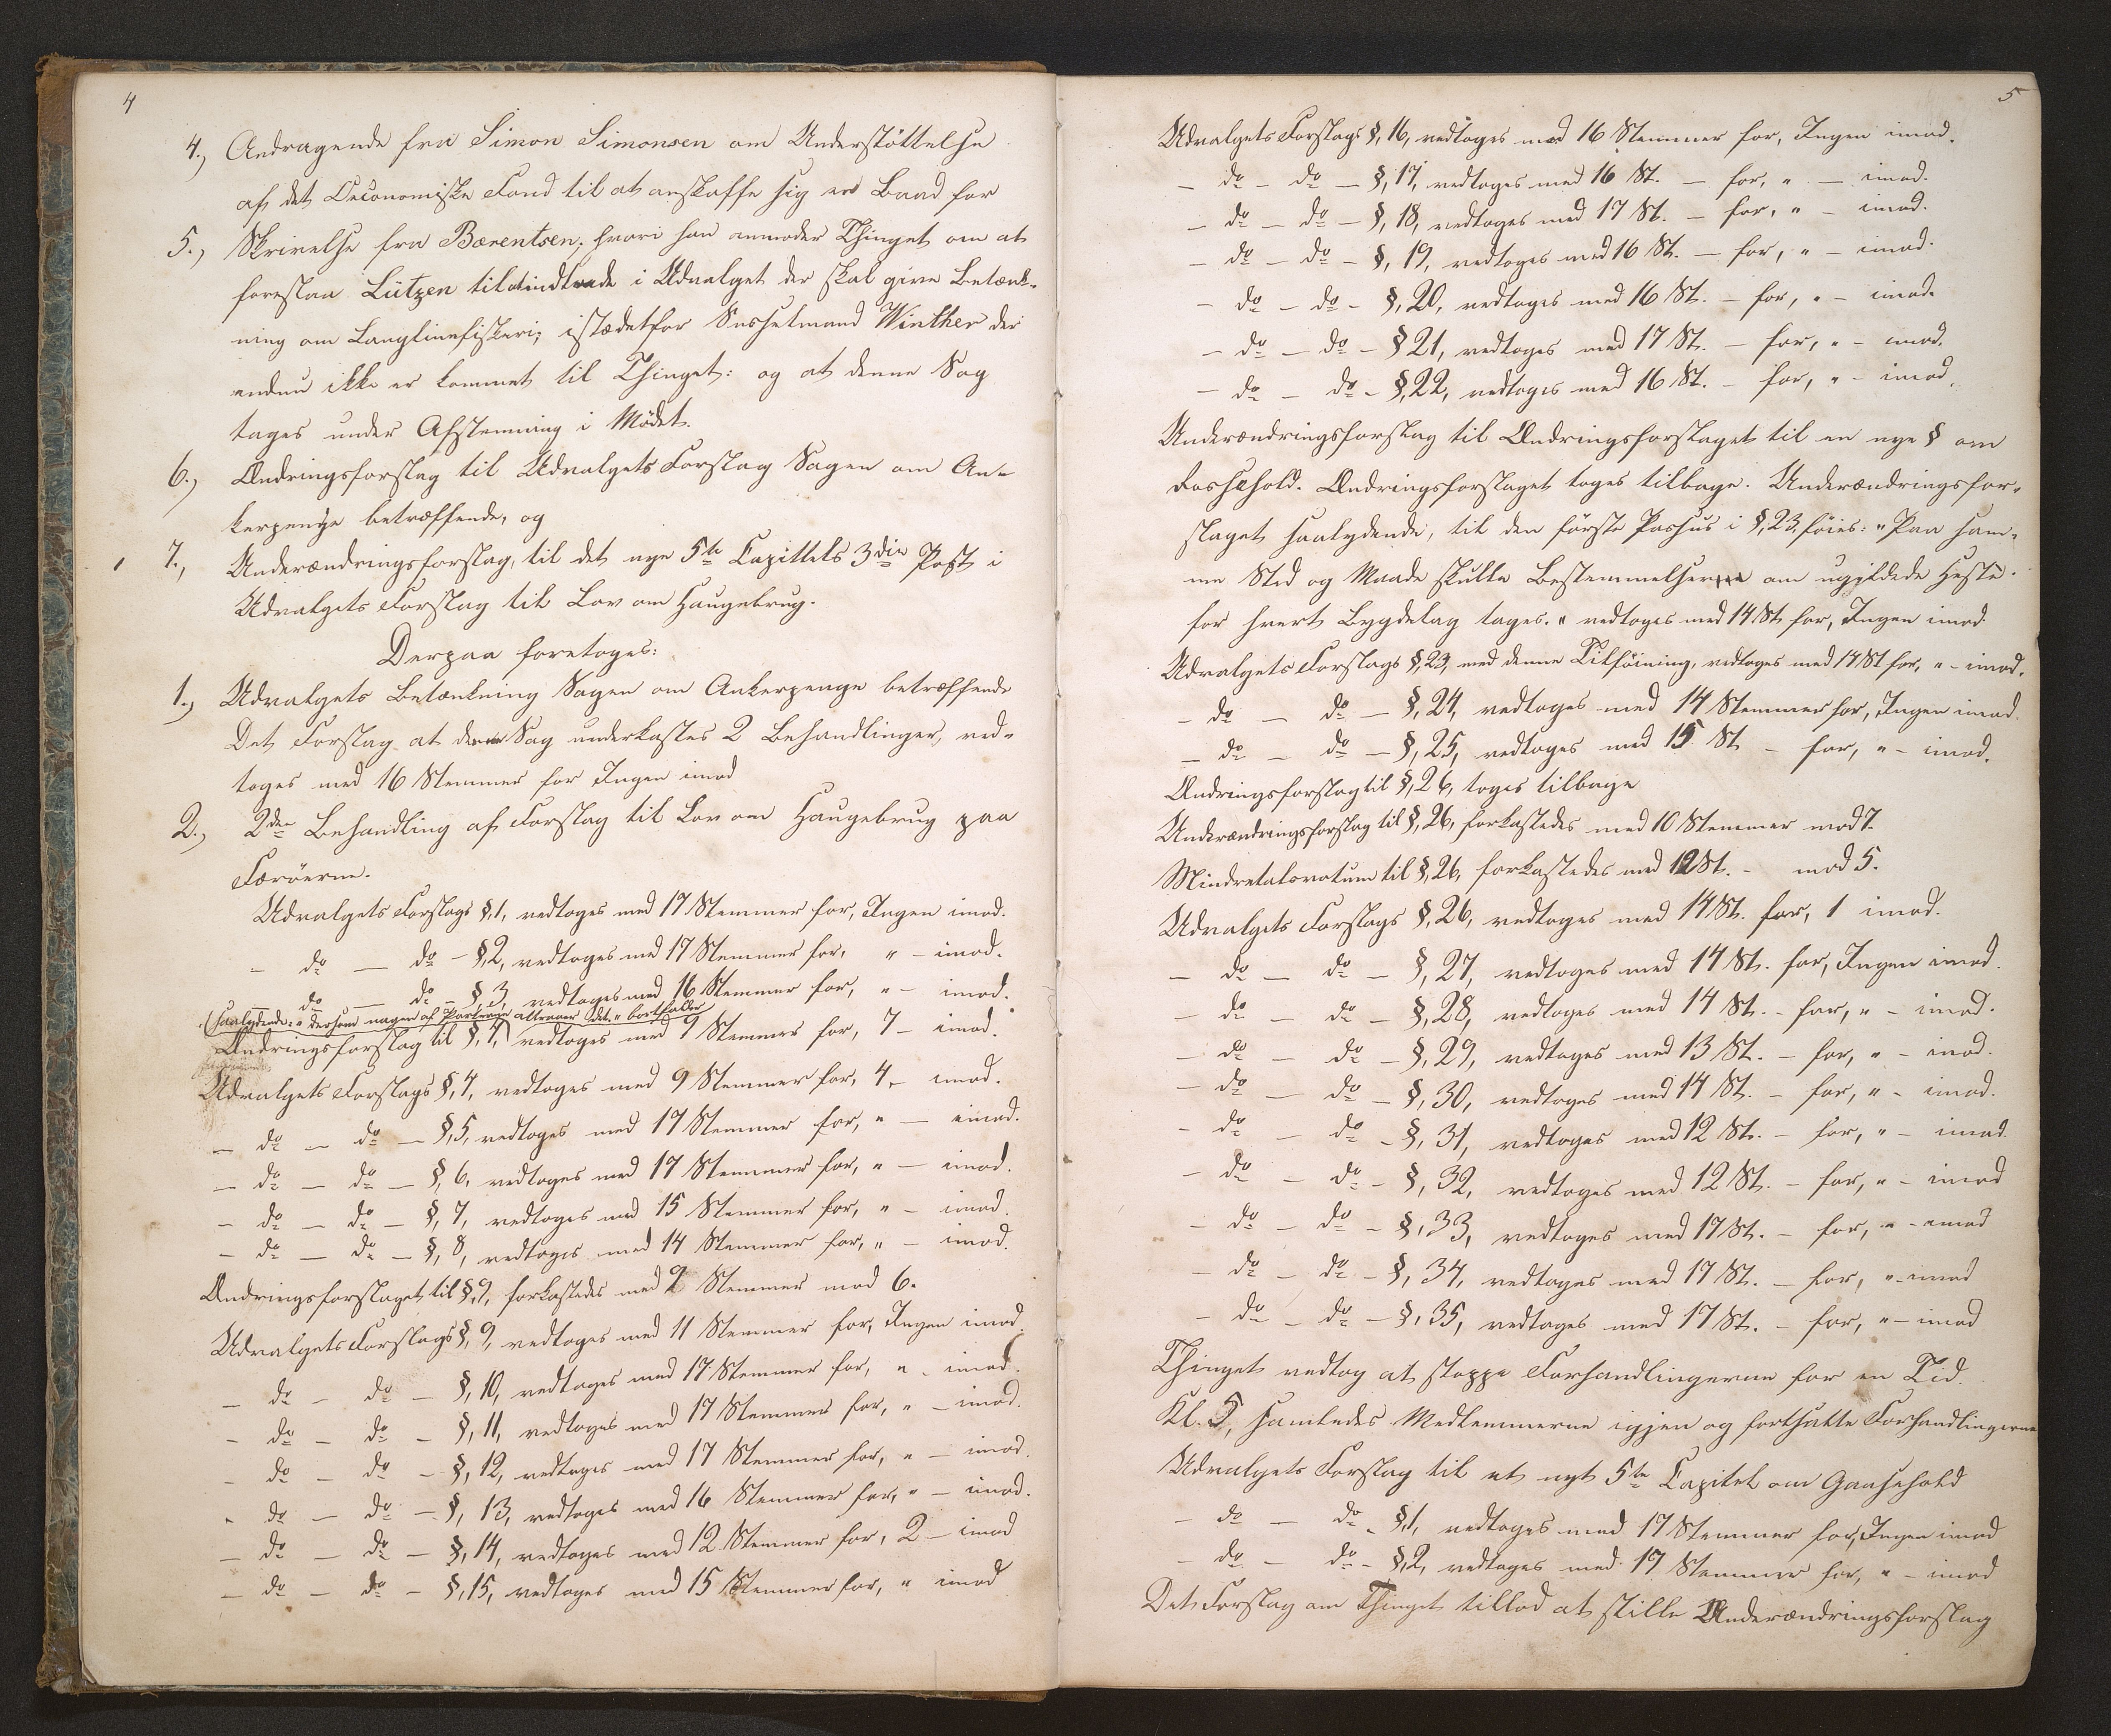 4
4.) Andragende fra Simon Simonsen om Understöttelse
af det Oeconomiske Fond til at anskaffe sig en Baad for
5.) Skrivelse fra Bærentsen; hvori han anmoder Thinget om at
foreslaa Lützen til at indtræde i Udvalget der skal give Betænk-
ning om Langlinefiskeri; istædetfor Sysselmand Winther der
endnu ikke er kommet til Thinget: og at denne Sag
tages under Afstemning i Mödet.
6.) Ændringsforslag til Udvalgets Forslag Sagen om An-
kerpenge betræffende, og
7., Underændringsforslag, til det nye 5te Capittels 3die Post i
Udvalgets Forslag til Lov om Haugebrug.
Derpaa foretoges:
1.) Udvalgets Betænkning Sagen om Ankerpenge betræffende
Det Forslag at denne Sag underkastes 2 Behandlinger, ved-
toges med 16 Stemmer for Ingen imod
2., 2den Behandling af Forslag til Lov om Haugebrug paa
Færöerne.
Udvalgets Forslags §,1, vedtoges med 17 Stemmer for, Ingen imod.
- do - do - §,2, vedtoges med 17 Stemmer for, " - imod.
- do - do - §,3, vedtoges med 16 Stemmer for, " - imod.
(saalydende: "dersom nogen af Parterne attraaer det" bortfalder
Ændringsforslag til §,4, vedtoges med 9 Stemmer for, 7 - imod.
Udvalgets Forslags §,4, vedtoges med 9 Stemmer for, 4 - imod.
- do - do - §,5, vedtoges med 17 Stemmer for, " - imod.
- do - do - §,6, vedtoges med 17 Stemmer for, " - imod.
- do - do - §,7, vedtoges med 15 Stemmer for, " - imod.
- do - do - §,8, vedtoges med 14 Stemmer for, " - imod.
Ændringsforslaget til §,9, forkastedes med 9 Stemmer mod 6.
Udvalgets Forslags §,9, vedtoges med 11 Stemmer for, Ingen imod.
- do - do - §,10, vedtoges med 17 Stemmer for, " - imod.
- do - do - §,11, vedtoges med 17 Stemmer for, " - imod.
- do - do - §,12, vedtoges med 17 Stemmer for, " - imod.
- do - do - §,13, vedtoges med 16 Stemmer for, " - imod.
- do - do - §,14, vedtoges med 12 Stemmer for, 2 - imod
- do - do - §,15, vedtoges med 15 Stemmer for, " imod
5
Udvalgets Forslags §,16, vedtoges med 16 Stemmer for, Ingen imod.
- do - do - §,17, vedtoges med 16 St. - for, " - imod.
- do - do - §,18, vedtoges med 17 St. - for, " - imod.
- do - do - §,19, vedtoges med 16 St. - for, " - imod.
- do - do - §,20, vedtoges med 16 St. - for, " - imod.
- do - do - §21, vedtoges med 17 St. - for, " - imod.
- do - do - §,22, vedtoges med 16 St. - for, " - imod.
Underændringsforslag til Ændringsforslaget til en nye § om
Hestehold. Ændringsforslaget toges tilbage. Underændringsfor-
slaget saalydende, til den förste Passus i §,23, föies: "Paa sam-
me Sted og Maade skulle Bestemmelserne om ugildede Heste
for hvert Bygdelag tages." vedtoges med 14 St for, Ingen imod
Udvalgets Forslags §,23, med denne Tilföining, vedtoges med 14 St for, " - imod.
- do - do - §,24, vedtoges med 14 Stemmer for, Ingen imod.
- do - do - §,25, vedtoges med 15 St - for, " - imod.
Ændringsforslag til §,26, toges tilbage
Underændringsforslag til §,26, forkastedes med 10 Stemmer mod 7.
Mindretalsvotum til §,26, forkastedes med 12 St. - mod 5.
Udvalgets Forslags §,26, vedtoges med 14 St. for, 1 imod.
- do - do - §,27, vedtoges med 14 St. for, Ingen imod.
- do - do - §,28, vedtoges med 14 St. - for, " - imod.
- do - do - §,29, vedtoges med 13 St. - for, " - imod.
- do - do - §,30, vedtoges med 14 St. - for, " - imod.
- do - do - §,31, vedtoges med 12 St. - for, " - imod
- do - do - §,32, vedtoges med 12 St. - for, " - imod
- do - do - §,33, vedtoges med 17 St. - for, " - imod
- do - do - §,34, vedtoges med 17 St. - for, " - imod
- do - do - §,35, vedtoges med 17 St. - for, " - imod
Thinget vedtog at stoppe Forhandlingerne for en Tid.
Kl. 5, samledes Medlemmerne igjen og fortsatte Forhandlingerne
Udvalgets Forslag til et nyt 5te Capitel om Gaasehold
- do - do - §,1, vedtoges med 17 Stemmer for, Ingen imod
- do - do - §,2, vedtoges med 17 Stemmer for, " - imod
Det Forslag om Thinget tillod at stille Underændringsforslag